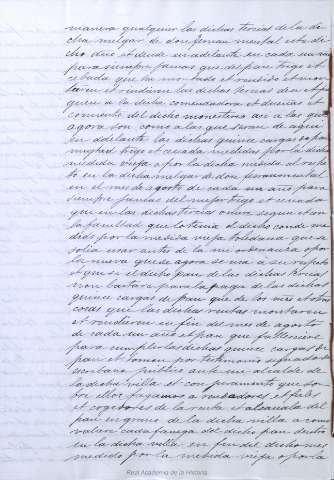 manera qualquier las dichas tercias de la di
cha melgar de don ferran mental este di
cho año et dende en adelante en cada un año
para siempre jamas que del pan trigo et
cebada que ha montado et rendido et mon
taren et rindieren las dichas tercias den et pa
guen a la dicha comendadora et dueñas et
convento del dicho monesterio asi a las que
agora son como a las que seran de aqui
en adelante las dichas quince cargas de pan
mitad trigo et cebada medidas por la dicha
medida vieja o por la dicha medida al respe
to en la dicha melgar de don ferranmental
en el mes de agosto de cada un año para
siempre jamas del mejor trigo et cebada
que en las dichas tercias oviere segun et con
la facultad que lo tenia el dicho conde me
didas por la medida vieja toledana que se
solia usar antes de la mi ordenanza o por
la nueva que de agora se usa a su respeto
et que si el dicho pan de las dichas tercias
non bastare para la paga de las dichas
quince cargas de pan que de los mes et otras
cosas que las dichas rentas montaren
et rindieren en fin del mes de agosto
de cada un año et pan que fallesciere
para cumplir las dichas quince cargas de
pan et tomen por testimonio signado de
escribano público ante un alcalde de
la dicha villa et con juramento que so
bre ello fagamos a rendadores et fieles
et cogedores de la renta et alcavala del
pan en grano de la dicha villa a como
valiere cada fanega del dicho pan dentro
en la dicha villa en fin del dicho mes
medido por la medida vieja o por la
Real Academia de la Historia